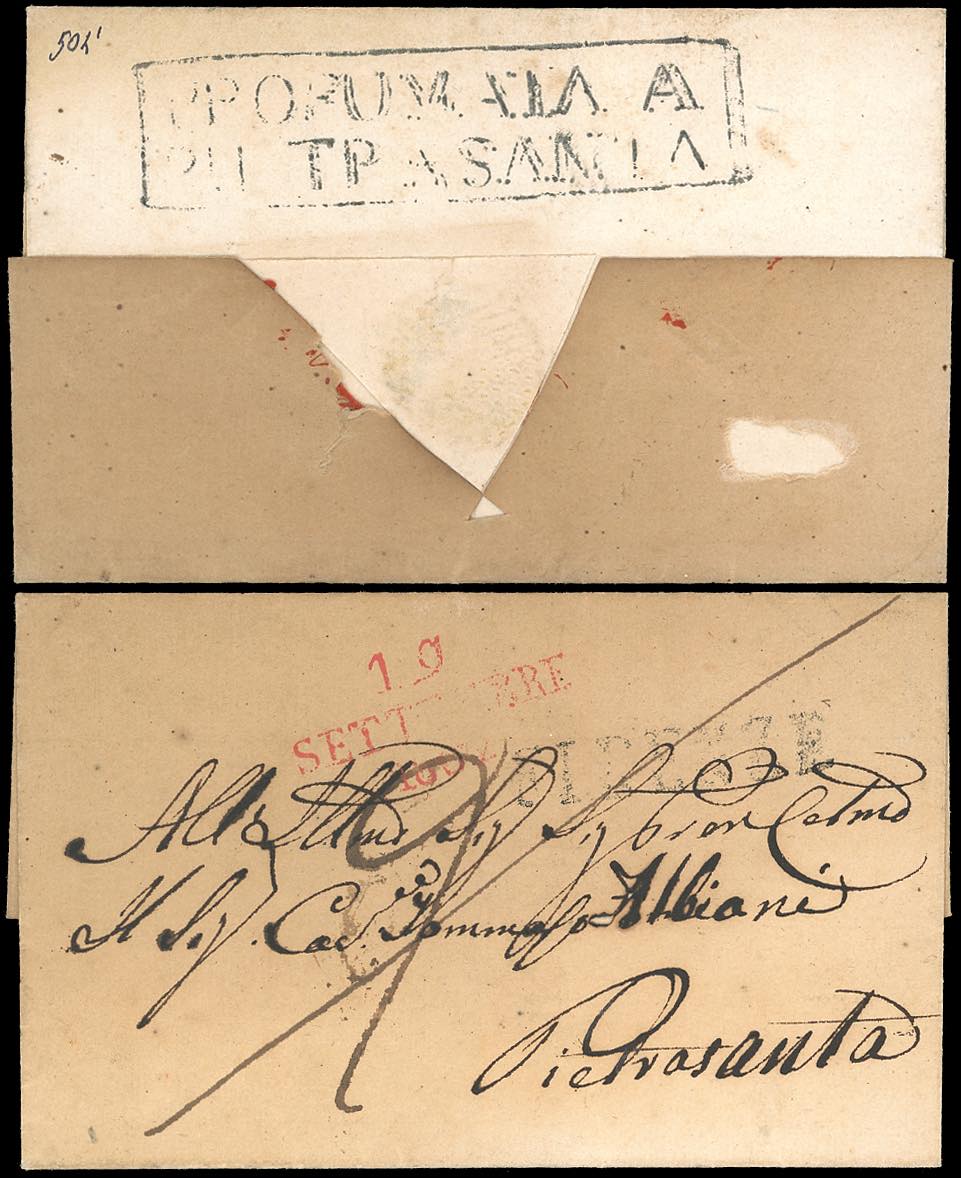 PROFUMATA A
PIETRASANTA
19
SETTEMBRE
FIRENZE
All Illmo Sig Sig Pron Colmo
Il Sig. Cav. Tommaso Albiani
Pietrasanta